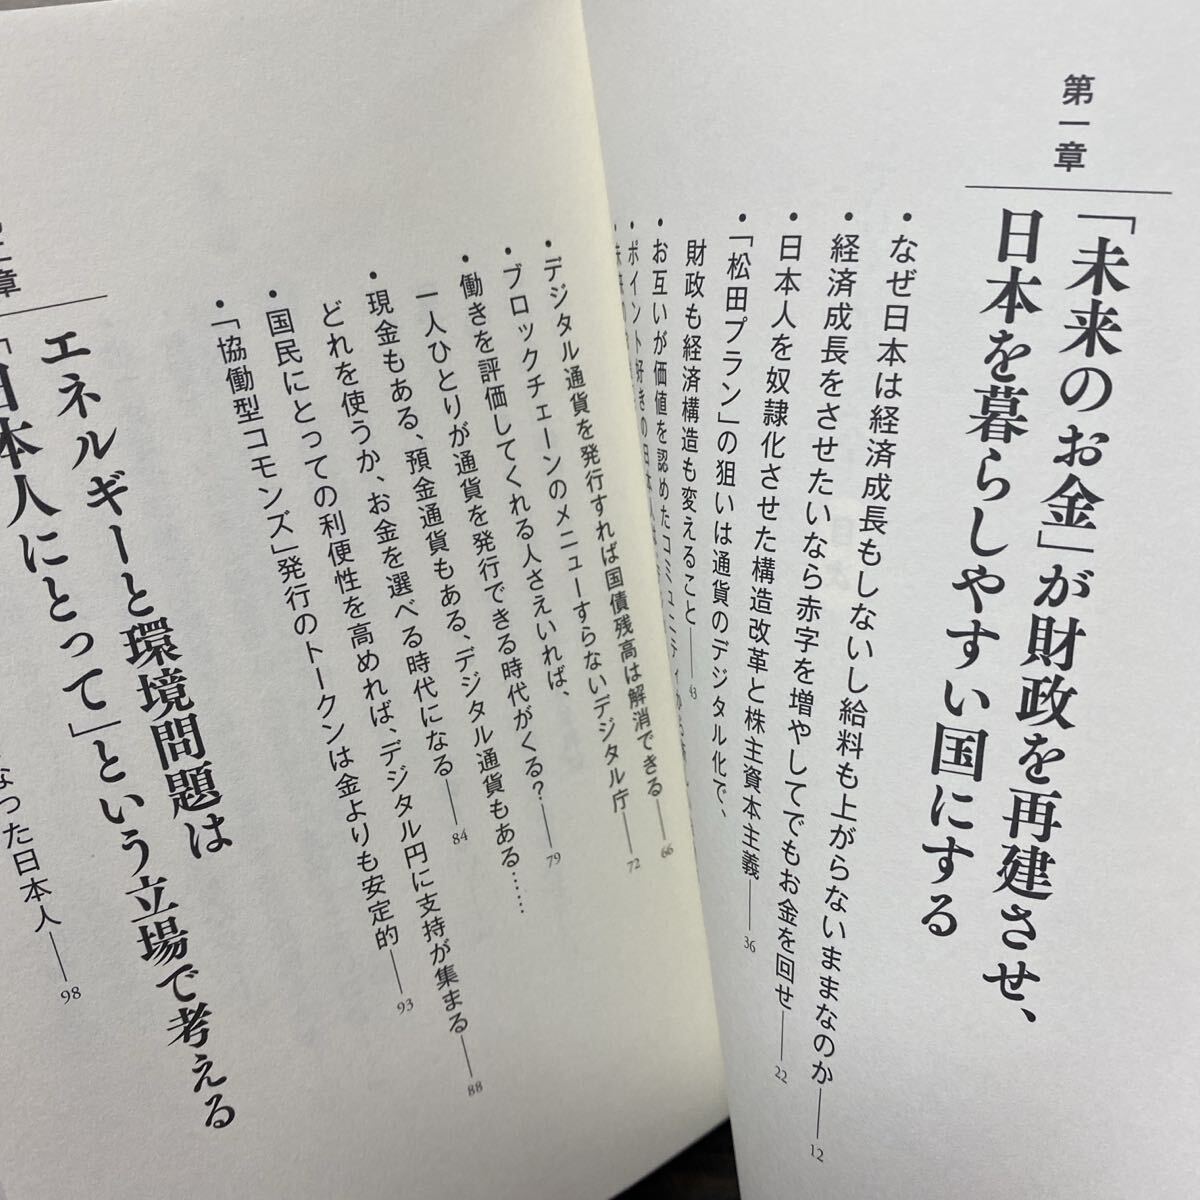 第一章
「未来のお金」が財政を再建させ、
日本を暮らしやすい国にする
・なぜ日本は経済成長もしないし給料も上がらないままなのか——12
・経済成長をさせたいなら赤字を増やしてでもお金を回せ——22
・日本人を奴隷化させた構造改革と株主資本主義——36
・「松田プラン」の狙いは通貨のデジタル化で、
財政も経済構造も変えること——43
・お互いが価値を認めたコミュニティ
・ポイント好きの日本人
・デジタル通貨を発行すれば国債残高は解消できる——66
・ブロックチェーンのメニューすらないデジタル庁——72
・働きを評価してくれる人さえいれば、
一人ひとりが通貨を発行できる時代がくる?——79
・現金もある、預金通貨もある、デジタル通貨もある……
どれを使うか、お金を選べる時代になる——84
・国民にとっての利便性を高めれば、デジタル円に支持が集まる——88
・「協働型コモンズ」発行のトークンは金よりも安定的——93
章
エネルギーと環境問題は
「日本人にとって」という立場で考える
なった日本人——98